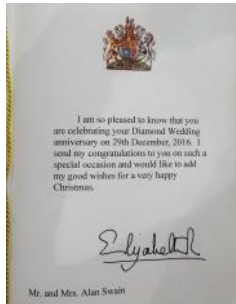 I am so pleased to know that you
are celebrating your Diamond Wedding
anniversary on 29th December, 2016. I
send my congratulations to you on such a
special occasion and would like to add
my good wishes for a very happy
Christmas.
Elizabeth R
Mr. and Mrs. Alan Swain